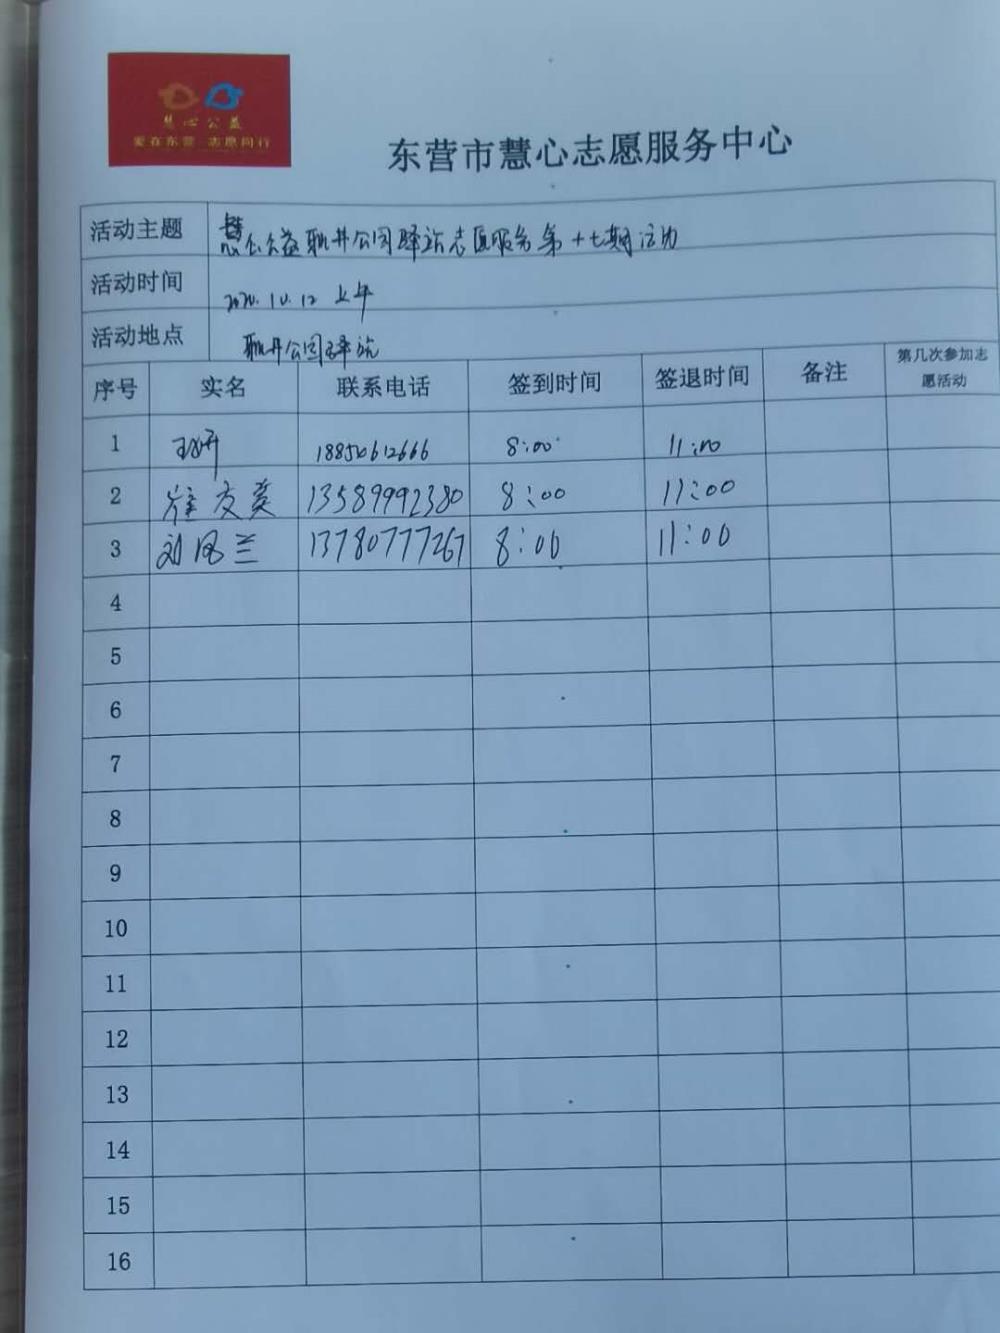 慧心公益
爱在东营 志愿同行
东营市慧心志愿服务中心
活动主题 慧心公益耿井公园驿站志愿服务第十七期活动
活动时间 2020.10.12 上午
活动地点 耿井公园驿站
序号 实名 联系电话 签到时间 签退时间 备注 第几次参加志愿活动
1 王妍 18850612666 8:00 11:00
2 崔友英 13589992380 8:00 11:00
3 刘凤兰 13780777267 8:00 11:00
4
5
6
7
8
9
10
11
12
13
14
15
16